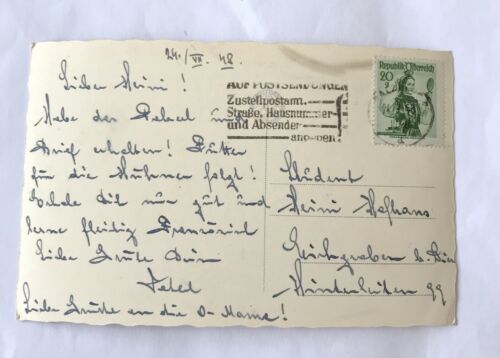 24./VII. 48.
Liebe Heini!
Habe das Packel und
Brief erhalten! Futter
für die Hühner folgt!
Erhole dich nur gut und
lerne fleißig Französisch
Liebe Grüße Dein
Liebe Grüße an die O-Mama!
AUF POSTSENDUNGEN
Zustellpostamt,
Straße, Hausnummer
und Absender
angeben!
Republik Österreich
20
g
Student
Heini Hofhans
Hinterleiten 99